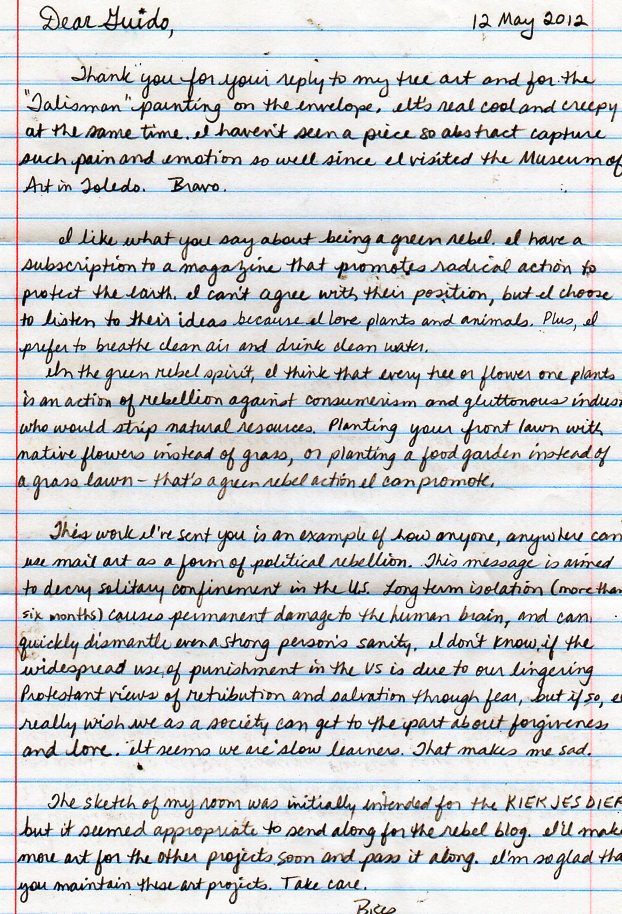 Dear Guido, 12 May 2012
Thank you for your reply to my tree art and for the
"Talisman" painting on the envelope. It's real cool and creepy
at the same time. I haven't seen a piece so abstract capture
such pain and emotion so well since I visited the Museum of
Art in Toledo. Bravo.
I like what you say about being a green rebel. I have a
subscription to a magazine that promotes radical action to
protect the earth. I can't agree with their position, but I choose
to listen to their ideas because I love plants and animals. Plus, I
prefer to breathe clean air and drink clean water.
In the green rebel spirit, I think that every tree or flower one plants
is an action of rebellion against consumerism and gluttonous indus
who would strip natural resources. Planting your front lawn with
native flowers instead of grass, or planting a food garden instead of
a grass lawn - that's a green rebel action I can promote.
This work I've sent you is an example of how anyone, anywhere can
use mail art as a form of political rebellion. This message is aimed
to decry solitary confinement in the U.S. Long term isolation (more than
six months) causes permanent damage to the human brain, and can
quickly dismantle even a strong person's sanity. I don't know if the
widespread use of punishment in the US is due to our lingering
Protestant views of retribution and salvation through fear, but if so, I
really wish we as a society can get to the part about forgiveness
and love. It seems we are slow learners. That makes me sad.
The sketch of my room was initially intended for the KIEKJESDIEF
but it seemed appropriate to send along for the rebel blog. I'll make
more art for the other projects soon and pass it along. I'm so glad tha
you maintain these art projects. Take care.